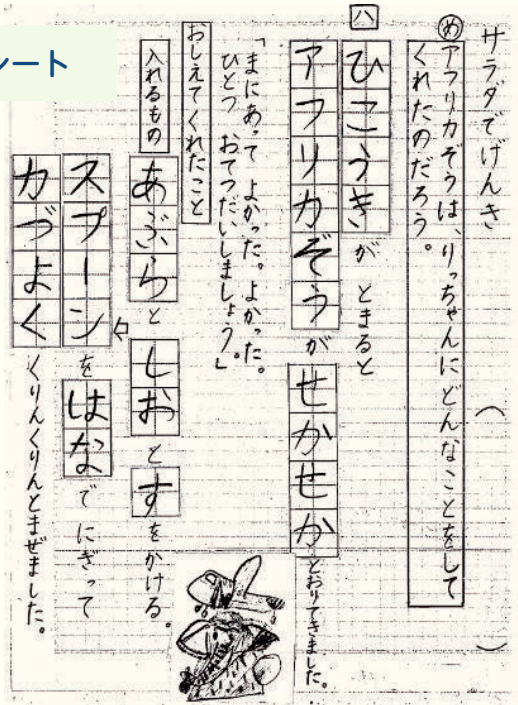 サラダでげんき（　　　）
め アフリカぞうは、りっちゃんにどんなことをして
くれたのだろう。
八
ひこうきが とまると
アフリカぞうが せかせかとおりてきました。
「まにあって よかった。よかった。
ひとつ おてつだいしましょう。」
おしえてくれたこと
入れるもの
あぶらと しおと すをかける。
スプーンを はなで にぎって
力づよく くりんくりんとまぜました。
ート